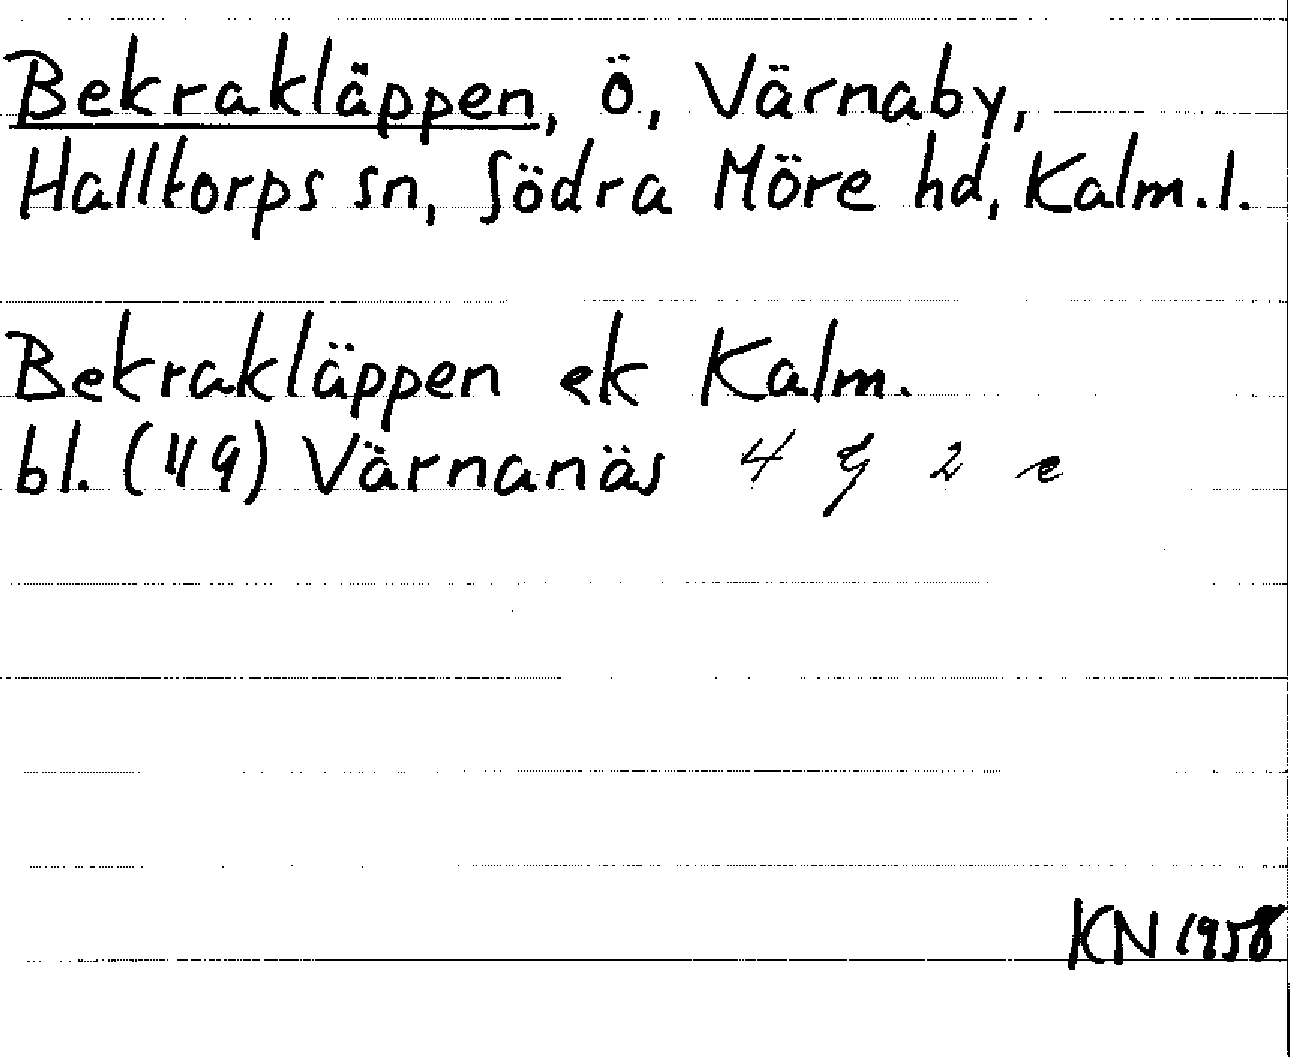 Bekrakläppen, ö, Värnaby,
Halltorps sn, Södra Möre hd, Kalm. l.
Bekrakläppen ek Kalm.
bl. (119) Värnanäs 4 g 2 e
KN 1958